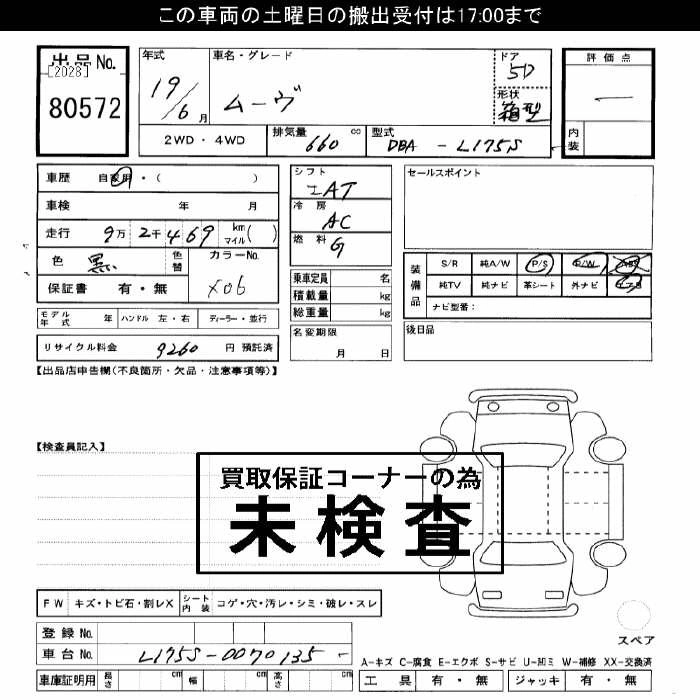 この車両の土曜日の搬出受付は17:00まで
出品No.
[2028]
80572
年式
19/6月
車名・グレード
ムーヴ
ドア
5D
形状
箱型
評価点
一
内装
2WD・4WD
排気量 660 cc
型式 DBA - L175S
車歴 自家用・( )
車検 年 月
走行 9万2千469 km マイル( )
色 黒
色替
カラーNo.
X06
保証書 有・無
シフト
IAT
冷房
AC
燃料
G
乗車定員 名
積載量 kg
総重量 kg
セールスポイント
装備品
S/R 純A/W P/S P/W ABS
純TV 純ナビ 革シート 外ナビ エアB
ナビ型番:
モデル年式 年 ハンドル 左・右 ディーラー・並行
リサイクル料金 9260 円 預託済
名変期限
月 日
後日品
【出品店申告欄(不良箇所・欠品・注意事項等)】
【検査員記入】
買取保証コーナーの為
未検査
FW キズ・トビ石・割レX シート内装 コゲ・穴・汚レ・シミ・破レ・スレ
登録No.
車台No. L175S-0070135 -
車庫証明用 長さ cm 幅 cm 高さ cm
スペア
A-キズ C-腐食 E-エクボ S-サビ U-凹ミ W-補修 XX-交換済
工具 有・無 ジャッキ 有・無